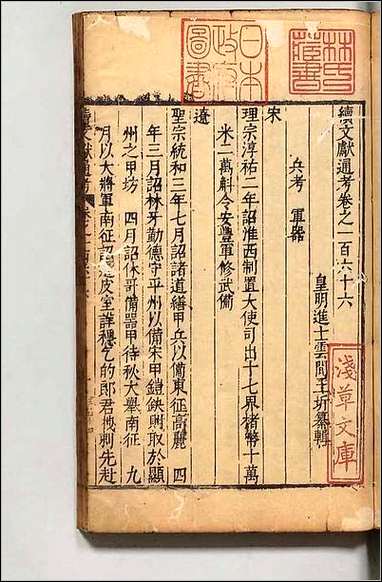 林氏藏書
日本政府圖書
淺草文庫
續文獻通考卷之一百六十六
皇明進士雲間王圻纂輯
兵考　軍器
宋
理宗淳祐二年詔淮西制置大使司出十七界楮幣十萬
米二萬斛令安豐軍修武備
遼
聖宗統和三年七月詔諸道繕甲兵以備東征高麗　四
年三月詔林牙勤德守平州以備宋甲鎧缺則取於顯
州之甲坊　四月詔休哥備器甲待秋大舉南征　九
月以大將軍南征詔遣皮室詳穩乞的郎君拽剌先赴